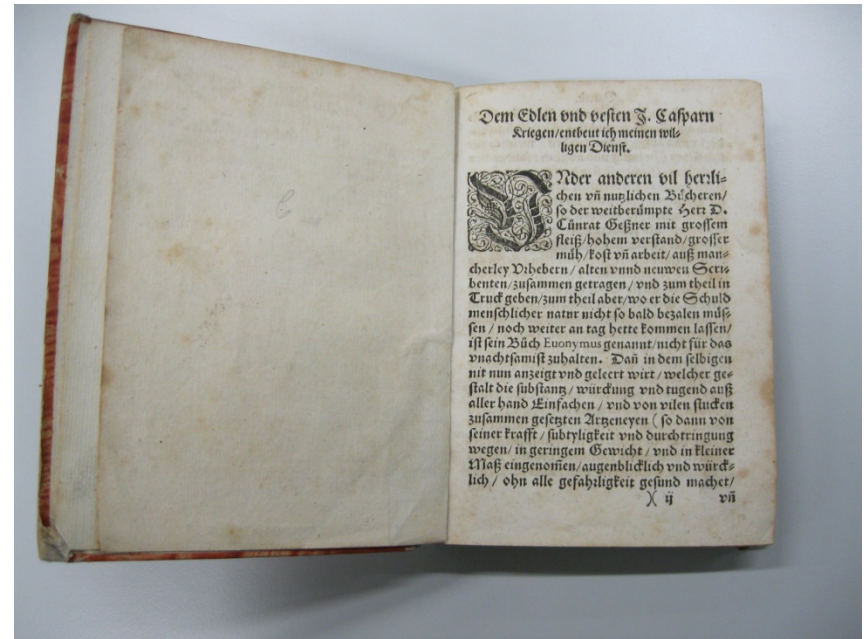 Dem Edlen vnd vesten J. Casparn
Kriegen/entbeut ich meinen wil-
ligen Dienst.
VNder anderen vil herzli-
chen vñ nutzlichen Bücheren/
so der weitberümpte Herr D.
Cůnrat Geßner mit grossem
fleiß/hohem verstand/grosser
müh/kost vñ arbeit/auß man-
cherley Vrhebern/alten vnnd neuwen Scri-
benten/zusammen getragen/vnd zum theil in
Truck geben/zum theil aber/wo er die Schuld
menschlicher natur nicht so bald bezalen müs-
sen/noch weiter an tag hette kommen lassen/
ist sein Bůch Euonymus genannt/nicht für das
vnachtsamist zuhalten. Dañ in dem selbigen
nit nun anzeigt vnd geleert wirt/welcher ge-
stalt die substantz/würckung vnd tugend auß
aller hand Einfachen/vnd von vilen stucken
zusammen gesetzten Artzeneyen (so dann von
seiner krafft/subtyligkeit vnd durchtringung
wegen/in geringem Gewicht/vnd in kleiner
Maß eingenom̃en/augenblicklich vnd würck-
lich/ohn alle gefahrligkeit gesund machet/
)( ij vñ